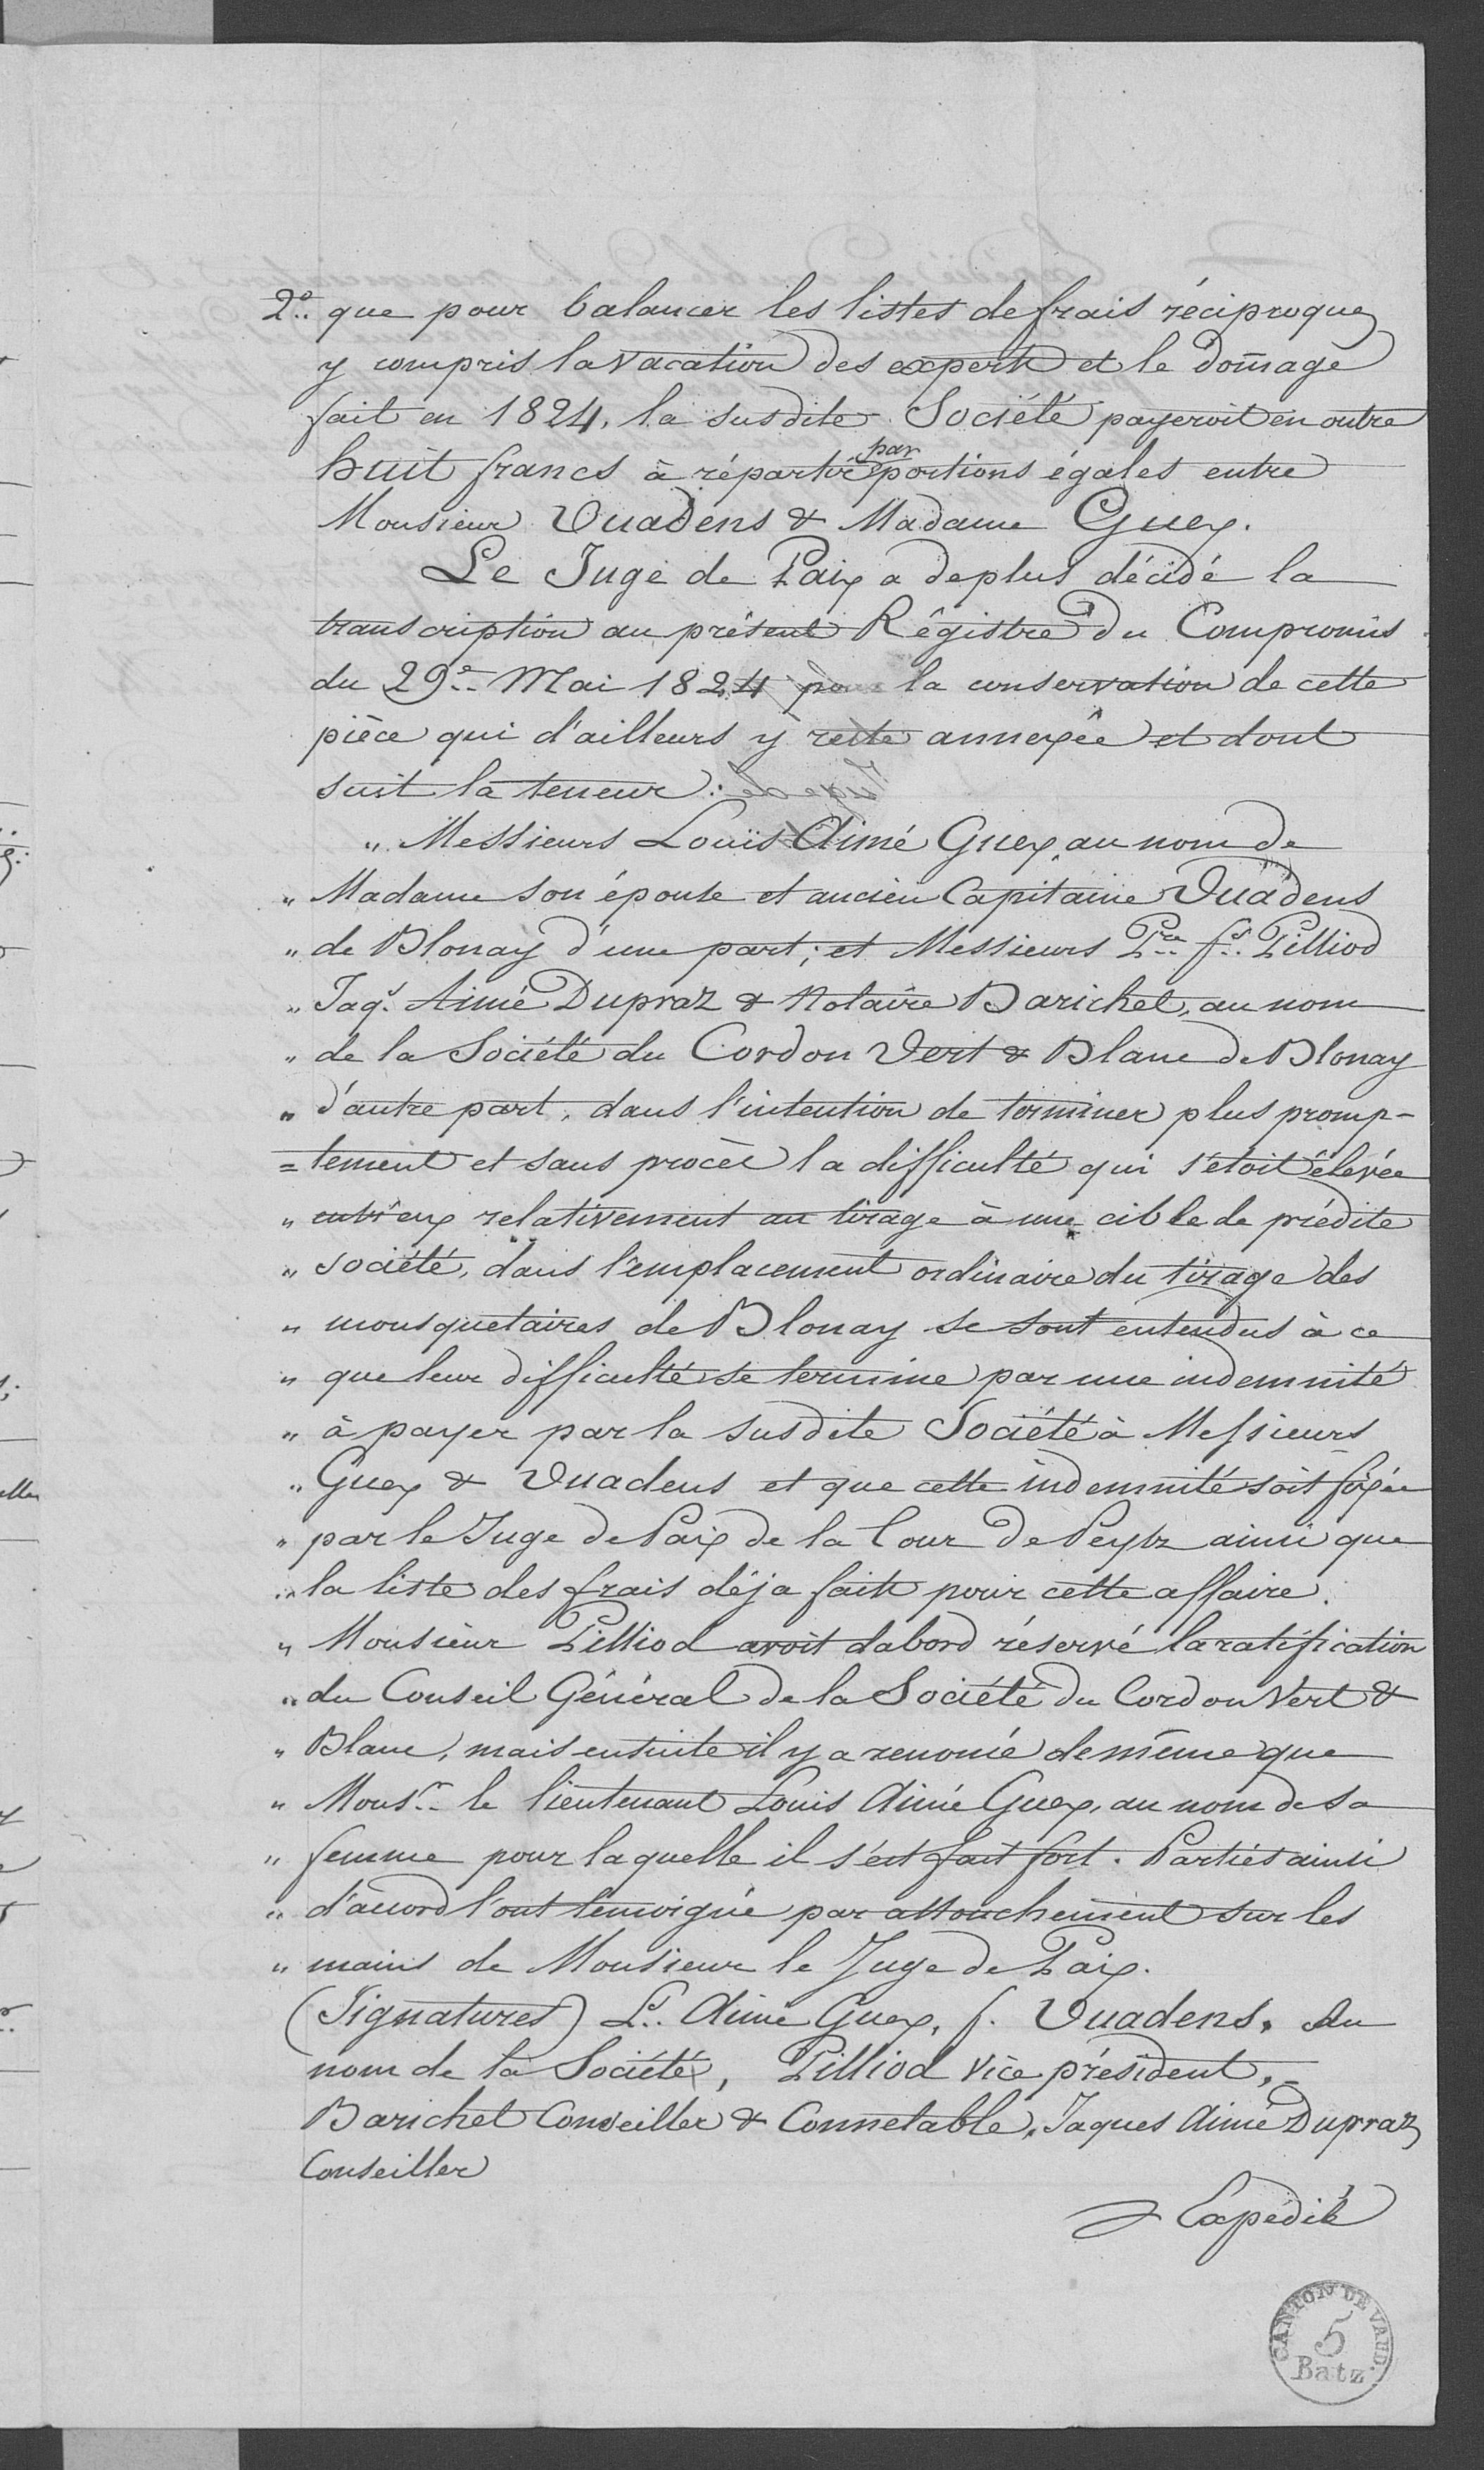 2º. que pour balancer les listes de frais réciproques
y compris la vacation des experts et le domage
fait en 1824, la susdite Société payeroit en outre
huit francs à répartir par portions égales entre
Monsieur Vuadens & Madame Guex.
Le Juge de Paix a deplus décidé la
transcription au présent Régistre du Compromis
du 29e. Mai 1824 pour la conservation de cette
pièce qui d'ailleurs y reste annexée et dont
suit la teneur:
" Messieurs Louïs Aimé Guex, au nom de
" Madame son épouse et ancien Capitaine Vuadens
" de Blonay d'une part; et Messieurs Pre. fs. Pilliod
" Jaqs. Aimé Dupraz & Notaire Barichet, au nom
" de la Société du Cordon Vert & Blanc de Blonay
" d'autre part, dans l'intention de terminer plus promp-
= tement et sans procès la difficulté qui s'étoit élevée
" entr'eux relativement au tirage à une cible de prédite
" société, dans l'emplacement ordinaire du tirage des
" mousquetaires de Blonay se sont entendus à ce
" que leur difficulté se termine par une indemnité
" à payer par la susdite Société à Messieurs
" Guex & Vuadens et que cette indemnité soit fixée
" par le Juge de Paix de la Tour de Peylz ainsi que
" la liste des frais déja faits pour cette affaire.
" Monsieur Pilliod avoit dabord réservé la ratification
" du Conseil Général de la Société du Cordon Vert &
" Blanc, mais ensuite il y a renoncé de même que
" Monsr. le lieutenant Louis Aimé Guex, au nom de sa
" femme pour laquelle il s'est fait fort. Parties ainsi
" d'accord l'ont témoigné par attouchement sur les
" mains de Monsieur le Juge de Paix.
(Signatures) Ls. Aimé Guex, f. Vuadens. Au
nom de la Société, Pilliod Vice président,-
Barichet Conseiller & Connetable, Jaques Aimé Dupraz
Conseiller
Expédié
CANTON DE VAUD.
5
Batz